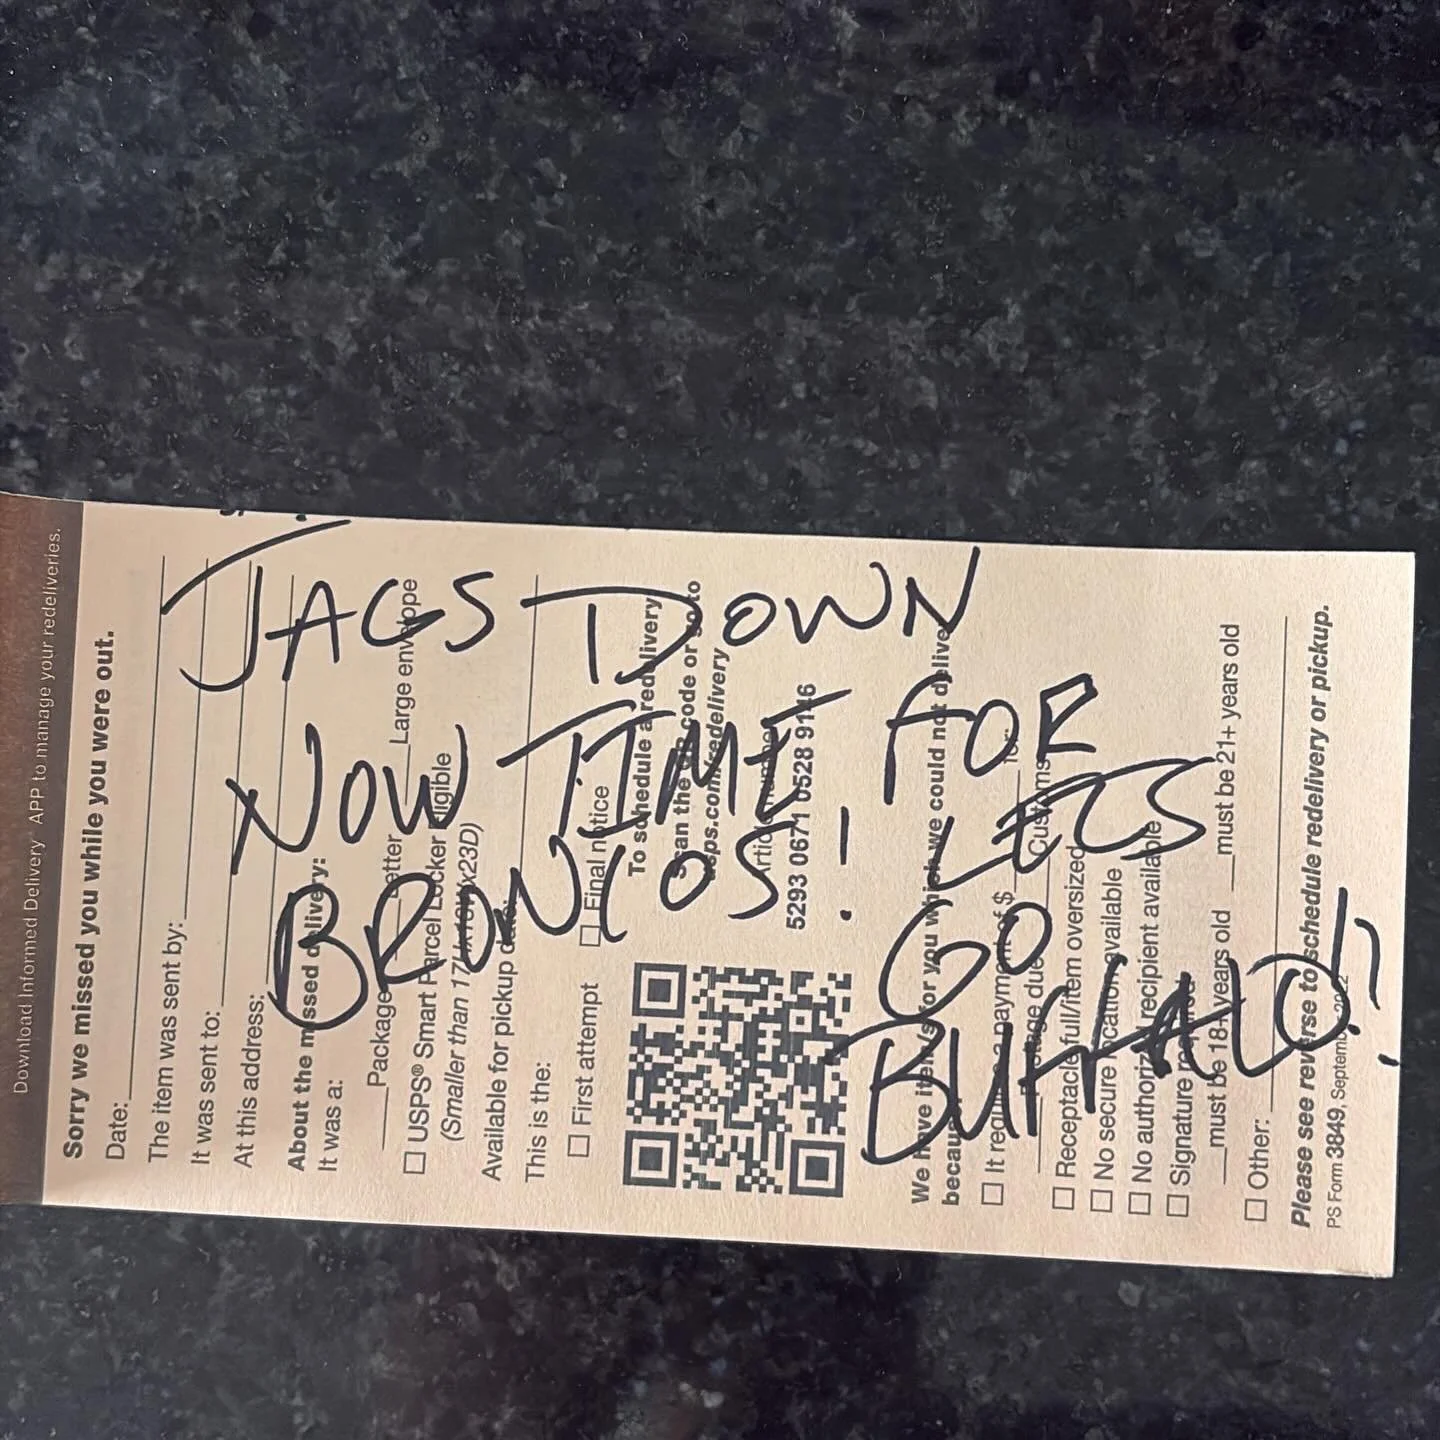 JAGS DOWN
NOW TIME FOR
BRONCOS! LETS
GO
BUFFALO!!
Download Informed Delivery® APP to manage your redeliveries.
Sorry we missed you while you were out.
Date:
The item was sent by:
It was sent to:
At this address:
About the missed delivery:
It was a:
Package Letter Large envelope
USPS® Smart Parcel Locker Eligible
(Smaller than 17Hx16Wx23D)
Available for pickup date:
This is the:
First attempt Final notice
To schedule a redelivery
scan the QR code or go to
usps.com/redelivery
Article number
5293 0671 0528 9146
We have item/s for you which we could not deliver
because
It requires a payment of $ for:
Postage due Customs
Receptacle full/item oversized
No secure location available
No authorized recipient available
Signature required
must be 18+ years old must be 21+ years old
Other:
Please see reverse to schedule redelivery or pickup.
PS Form 3849, September 2022